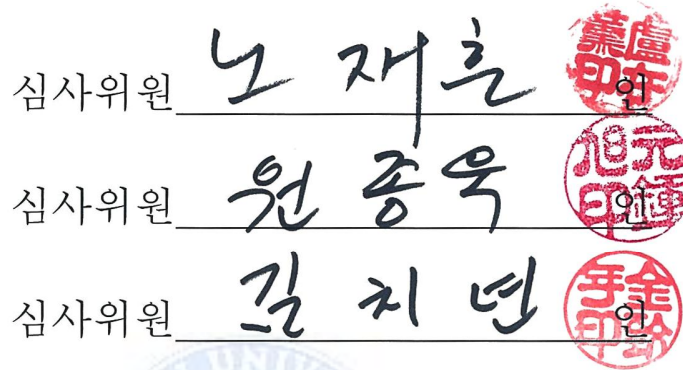 심사위원 노 재훈 인
심사위원 원 종욱 인
심사위원 김 치 년 인